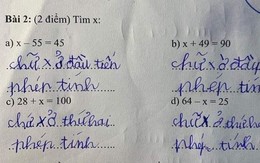 Bài 2: (2 điểm) Tìm x:
a) x – 55 = 45
b) x + 49 = 90
chữ x ở đầu tiên
chữ x ở đầu
phép tính
phép tính
c) 28 + x = 100
d) 64 – x = 25
chữ x ở thứ hai
chữ x ở thứ ha
phép tính
phép tính